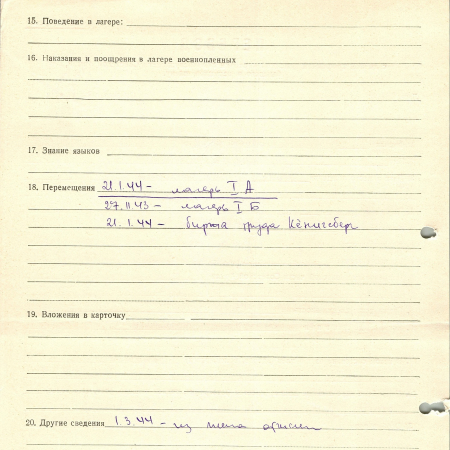 15. Поведение в лагере:
16. Наказания и поощрения в лагере военнопленных
17. Знание языков
18. Перемещения 21.1.44 – лагерь I А
27.11.43 – лагерь I Б
21.1.44 – биржа труда Кёнигсберг
19. Вложения в карточку
20. Другие сведения 1.3.44 – из